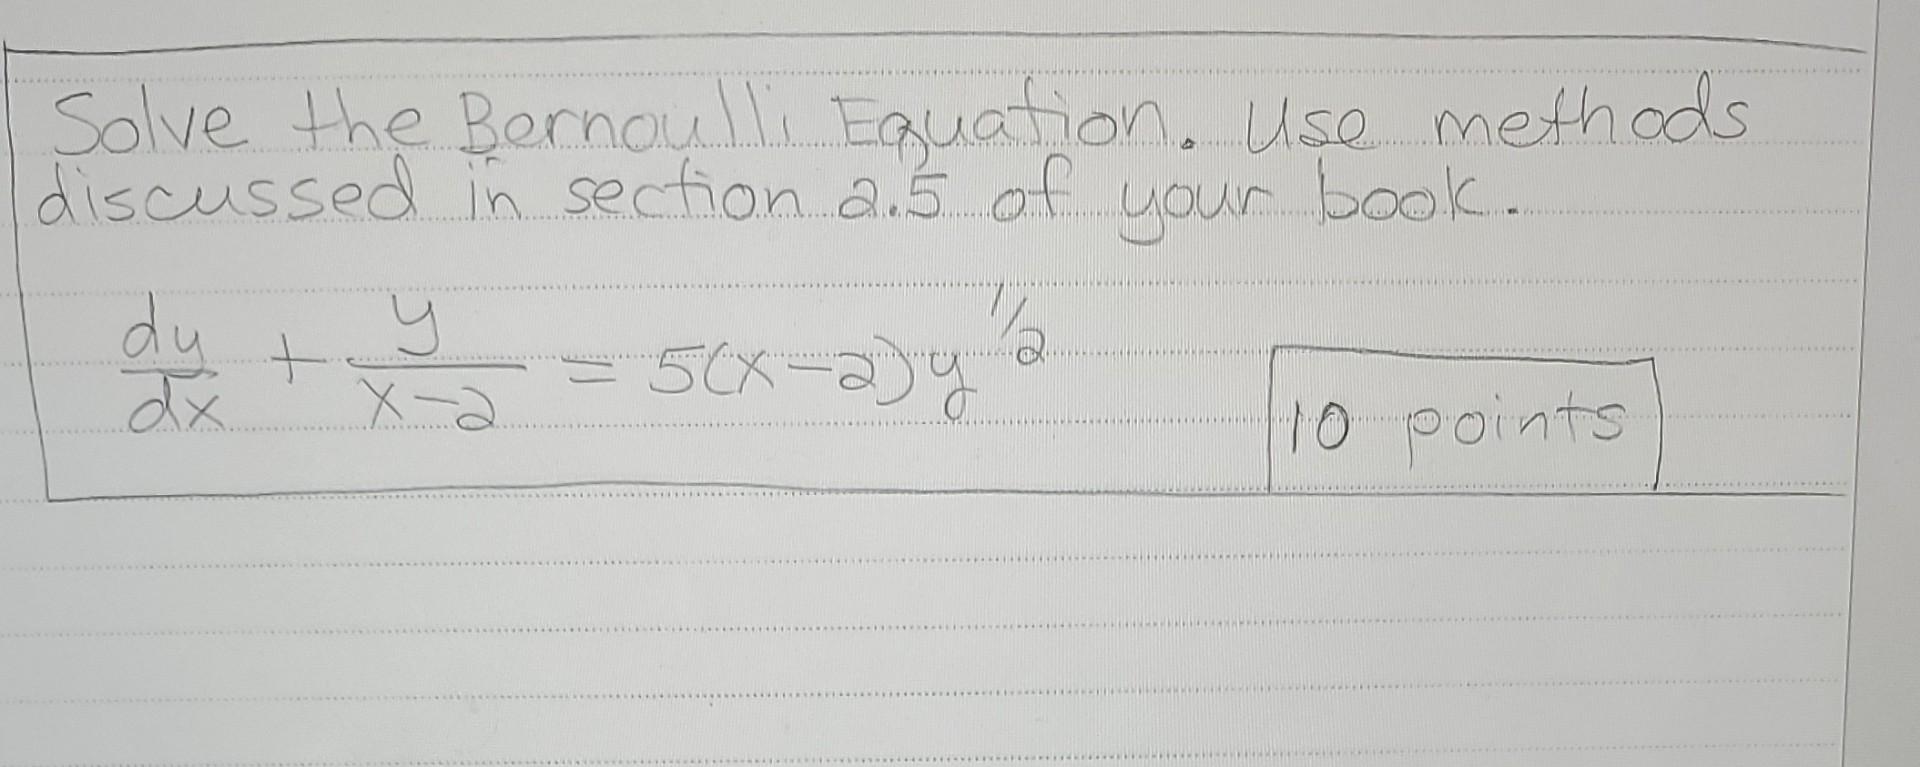 Solve the Bernoulli Equation. Use methods
discussed in section 2.5 of your book.
dy/dx + y/(x-2) = 5(x-2)y^1/2
10 points